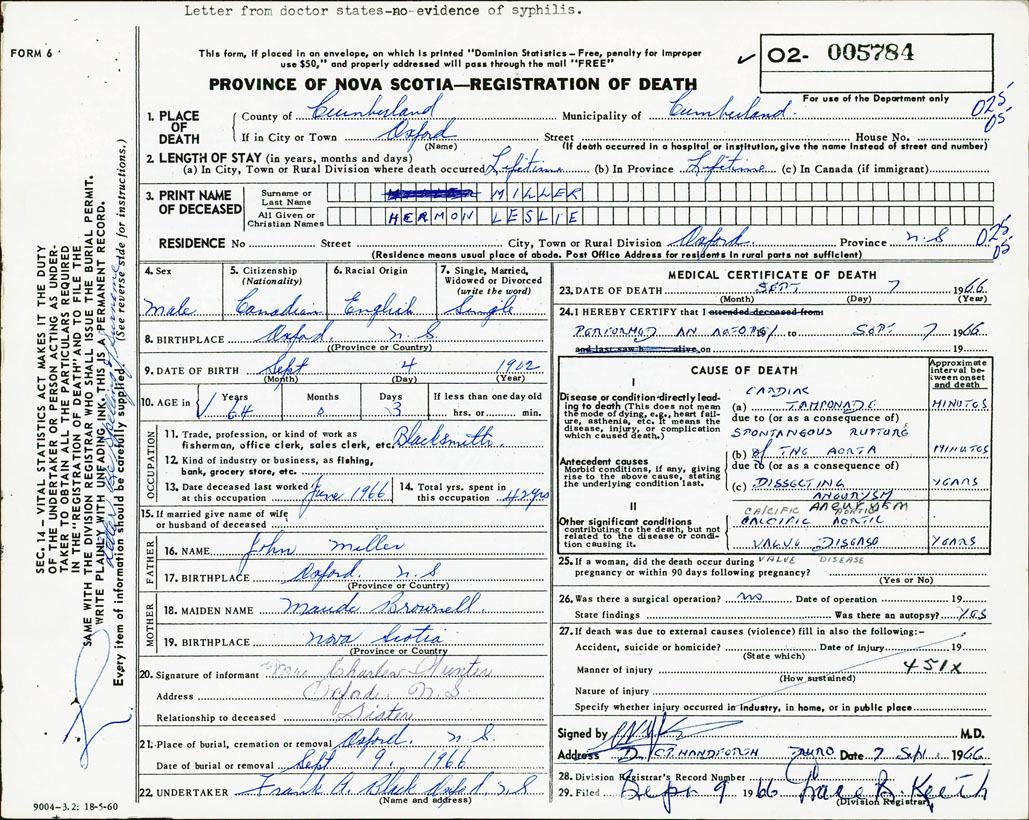 Letter from doctor states-no-evidence of syphilis.
FORM 6
This form, if placed in an envelope, on which is printed "Dominion Statistics – Free, penalty for improper
use $50," and properly addressed will pass through the mail "FREE"
02- 005784
For use of the Department only
PROVINCE OF NOVA SCOTIA—REGISTRATION OF DEATH
1. PLACE OF DEATH
County of Cumberland Municipality of Cumberland
025
05
If in City or Town Oxford Street House No.
(Name) (If death occurred in a hospital or institution, give the name instead of street and number)
2. LENGTH OF STAY (in years, months and days)
(a) In City, Town or Rural Division where death occurred Lifetime (b) In Province Lifetime (c) In Canada (if immigrant)
3. PRINT NAME OF DECEASED
Surname or Last Name MILLER
All Given or Christian Names HERMON LESLIE
RESIDENCE No Street City, Town or Rural Division Oxford Province N.S
025
05
(Residence means usual place of abode. Post Office Address for residents in rural parts not sufficient)
4. Sex
Male
5. Citizenship
(Nationality)
Canadian
6. Racial Origin
English
7. Single, Married,
Widowed or Divorced
(write the word)
Single
8. BIRTHPLACE Oxford, N.S
(Province or Country)
9. DATE OF BIRTH Sept 4 1902
(Month) (Day) (Year)
10. AGE in
Years Months Days If less than one day old
64 0 3 hrs. or min.
OCCUPATION
11. Trade, profession, or kind of work as
fisherman, office clerk, sales clerk, etc. Blacksmith
12. Kind of industry or business, as fishing,
bank, grocery store, etc.
13. Date deceased last worked
at this occupation June 1966
14. Total yrs. spent in
this occupation 42 yrs
15. If married give name of wife
or husband of deceased
FATHER
16. NAME John Miller
17. BIRTHPLACE Oxford, N.S
(Province or Country)
MOTHER
18. MAIDEN NAME Maude Brownell
19. BIRTHPLACE Nova Scotia
(Province or Country)
20. Signature of informant Mrs Charles Hunter
Address Oxford N.S
Relationship to deceased Sister
21. Place of burial, cremation or removal Oxford, N.S.
Date of burial or removal Sept 9, 1966
22. UNDERTAKER Frank A. Black Oxford, N.S
(Name and address)
9004-3.2: 18-5-60
MEDICAL CERTIFICATE OF DEATH
23. DATE OF DEATH SEPT 7 1966
(Month) (Day) (Year)
24. I HEREBY CERTIFY that I attended deceased from:
PERFORMED AN AUTOPSY to SEPT 7 1966
and last saw h alive on 19
CAUSE OF DEATH
Approximate
interval be-
tween onset
and death
I
Disease or condition directly lead-
ing to death (This does not mean
the mode of dying, e.g., heart fail-
ure, asthenia, etc. It means the
disease, injury, or complication
which caused death.)
CARDIAC
(a) TAMPONADE MINUTES
due to (or as a consequence of)
SPONTANEOUS RUPTURE
Antecedent causes
Morbid conditions, if any, giving
rise to the above cause, stating
the underlying condition last.
(b) OF THE AORTA MINUTES
due to (or as a consequence of)
(c) DISSECTING YEARS
ANEURYSM
II
Other significant conditions
contributing to the death, but not
related to the disease or condi-
tion causing it.
ANEURYSM
CALCIFIC AORTIC
CALCIFIC AORTIC
VALVE DISEASE YEARS
VALVE DISEASE
25. If a woman, did the death occur during
pregnancy or within 90 days following pregnancy?
(Yes or No)
26. Was there a surgical operation? NO Date of operation 19
State findings Was there an autopsy? YES
27. If death was due to external causes (violence) fill in also the following:–
Accident, suicide or homicide? Date of injury 19
(State which)
Manner of injury 451X
(How sustained)
Nature of injury
Specify whether injury occurred in industry, in home, or in public place
Signed by M.D.
Address C.T. HANDFORTH TRURO Date 7 Sept. 1966
28. Division Registrar's Record Number
29. Filed Sept 9 1966 B. Keith
(Division Registrar)
SEC. 14 – VITAL STATISTICS ACT MAKES IT THE DUTY
OF THE UNDERTAKER OR PERSON ACTING AS UNDER-
TAKER TO OBTAIN ALL THE PARTICULARS REQUIRED
IN THE "REGISTRATION OF DEATH" AND TO FILE THE
SAME WITH THE DIVISION REGISTRAR WHO SHALL ISSUE THE BURIAL PERMIT.
WRITE PLAINLY WITH UNFADING INK. THIS IS A PERMANENT RECORD.
Every item of information should be carefully supplied. (See reverse side for instructions.)